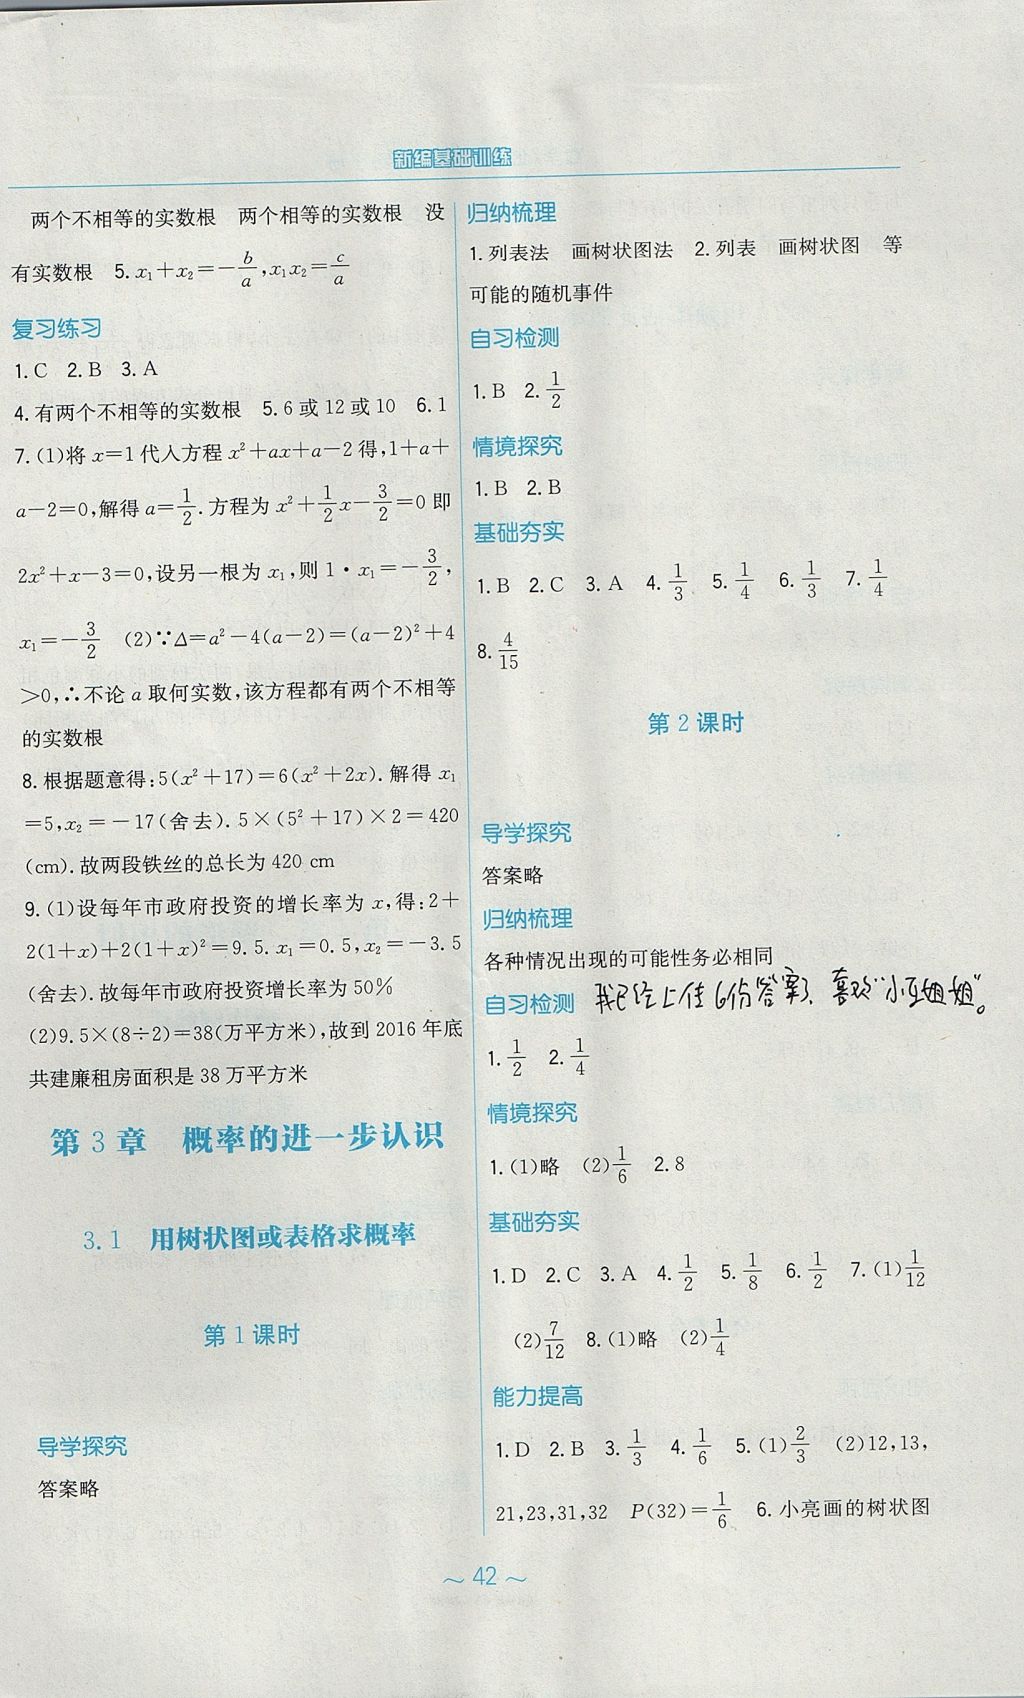 新编基础训练
两个不相等的实数根　两个相等的实数根　没
有实数根　5. x₁+x₂=-b/a, x₁x₂=c/a
复习练习
1. C　2. B　3. A
4. 有两个不相等的实数根　5. 6或12或10　6. 1
7. (1)将x=1代人方程x²+ax+a-2得,1+a+
a-2=0,解得a=1/2. 方程为x²+1/2x-3/2=0即
2x²+x-3=0,设另一根为x₁,则1·x₁=-3/2,
x₁=-3/2　(2)∵Δ=a²-4(a-2)=(a-2)²+4
>0,∴不论a取何实数,该方程都有两个不相等
的实数根
8. 根据题意得:5(x²+17)=6(x²+2x). 解得x₁
=5,x₂=-17(舍去). 5×(5²+17)×2=420
(cm). 故两段铁丝的总长为420 cm
9. (1)设每年市政府投资的增长率为x,得:2+
2(1+x)+2(1+x)²=9.5. x₁=0.5,x₂=-3.5
(舍去). 故每年市政府投资增长率为50%
(2)9.5×(8÷2)=38(万平方米),故到2016年底
共建廉租房面积是38万平方米
第3章　概率的进一步认识
3.1　用树状图或表格求概率
第1课时
导学探究
答案略
归纳梳理
1. 列表法　画树状图法　2. 列表　画树状图　等
可能的随机事件
自习检测
1. B　2. 1/2
情境探究
1. B　2. B
基础夯实
1. B　2. C　3. A　4. 1/3　5. 1/4　6. 1/3　7. 1/4
8. 4/15
第2课时
导学探究
答案略
归纳梳理
各种情况出现的可能性务必相同
自习检测　我已经上传6份答案了、喜欢"小互姐姐"。
1. 1/2　2. 1/4
情境探究
1. (1)略　(2)1/6　2. 8
基础夯实
1. D　2. C　3. A　4. 1/2　5. 1/8　6. 1/2　7. (1)1/12
(2)7/12　8. (1)略　(2)1/4
能力提高
1. D　2. B　3. 1/3　4. 1/6　5. (1)2/3　(2)12,13,
21,23,31,32　P(32)=1/6　6. 小亮画的树状图
～ 42 ～